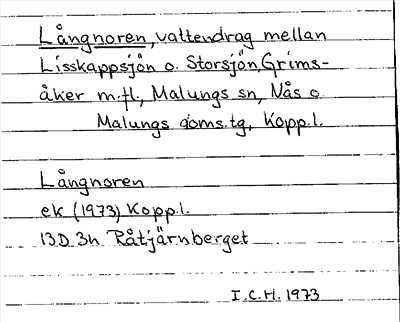 Långnoren, vattendrag mellan
Lisskappsjön o. Storsjön, Grims-
åker m.fl., Malungs sn, Nås o
Malungs doms.tg, Kopp.l.
Långnoren
ek (1973) Kopp.l.
13D 3h Råtjärnberget
I.C.H. 1973